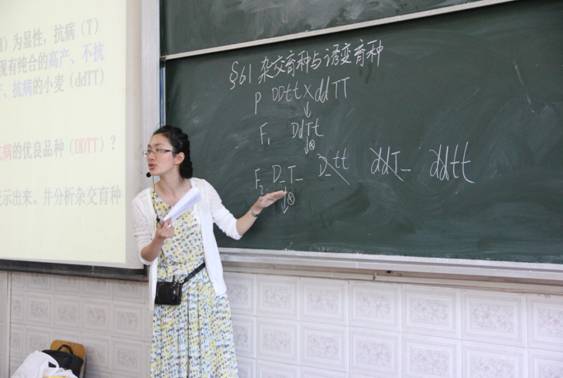 ）为显性，抗病（T）
现有纯合的高产、不抗
、抗病的小麦（ddTT）
病的优良品种（DDTT）？
示出来，并分析杂交育种
§6.1 杂交育种与诱变育种
P DDtt × ddTT
↓
F₁ DdTt
↓⊗
F₂ D_T_ D_tt ddT_ ddtt
↓⊗